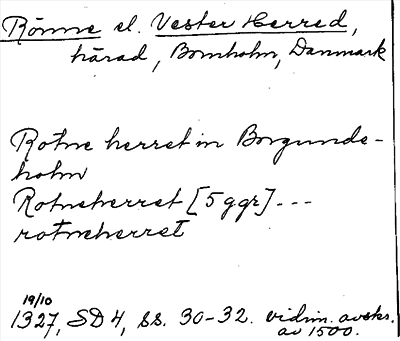 Rönne el. Vester Herred,
härad, Bornholm, Danmark
Rotne herret in Borgunde-
holm
Rotneherret [5 ggr] ---
rotneherret
19/10
1327, SD 4, ss. 30-32. vidim. avskr.
av 1500.